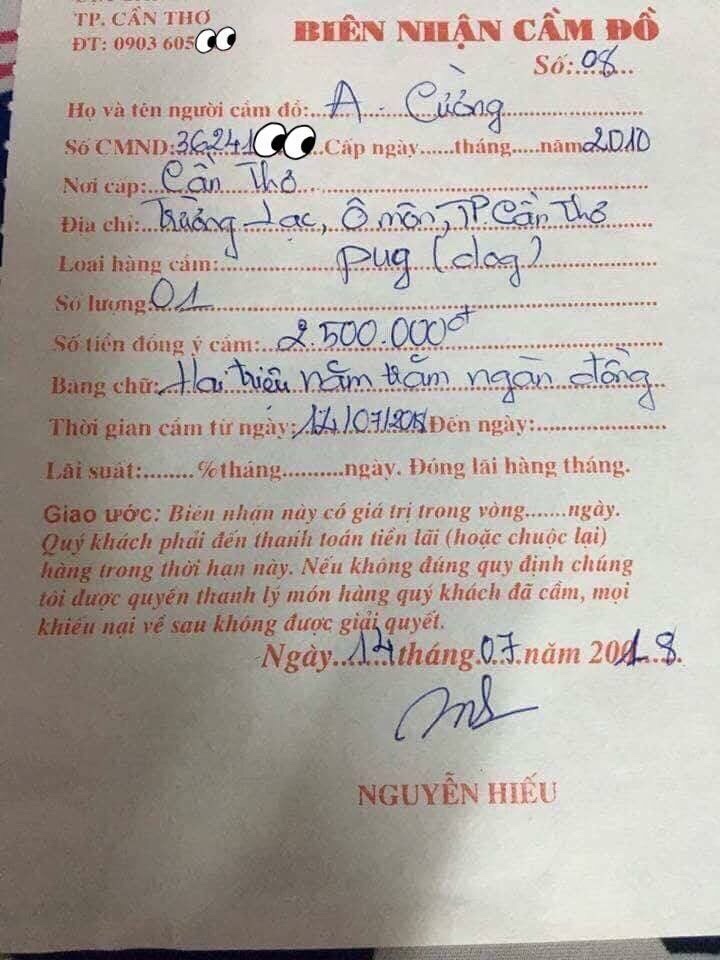 TP. CẦN THƠ
ĐT: 0903 605
BIÊN NHẬN CẦM ĐỒ
Số:...08...
Họ và tên người cầm đồ:...A. Cường...
Số CMND:36241...Cấp ngày......tháng.....năm2010
Nơi cấp:..Cần Thơ...
Địa chỉ:..Trường Lạc, Ô môn, TP. Cần Thơ
Loại hàng cầm:...pug (dog)...
Số lượng:01...
Số tiền đồng ý cầm:..2.500.000đ...
Bằng chữ:..Hai triệu năm trăm ngàn đồng
Thời gian cầm từ ngày:.14/07/2018 Đến ngày:...
Lãi suất:........%tháng.........ngày. Đóng lãi hàng tháng.
Giao ước: Biên nhận này có giá trị trong vòng.......ngày.
Quý khách phải đến thanh toán tiền lãi (hoặc chuộc lại)
hàng trong thời hạn này. Nếu không đúng quy định chúng
tôi được quyền thanh lý món hàng quý khách đã cầm, mọi
khiếu nại về sau không được giải quyết.
Ngày...14...tháng.07.năm 2018.
NGUYỄN HIẾU